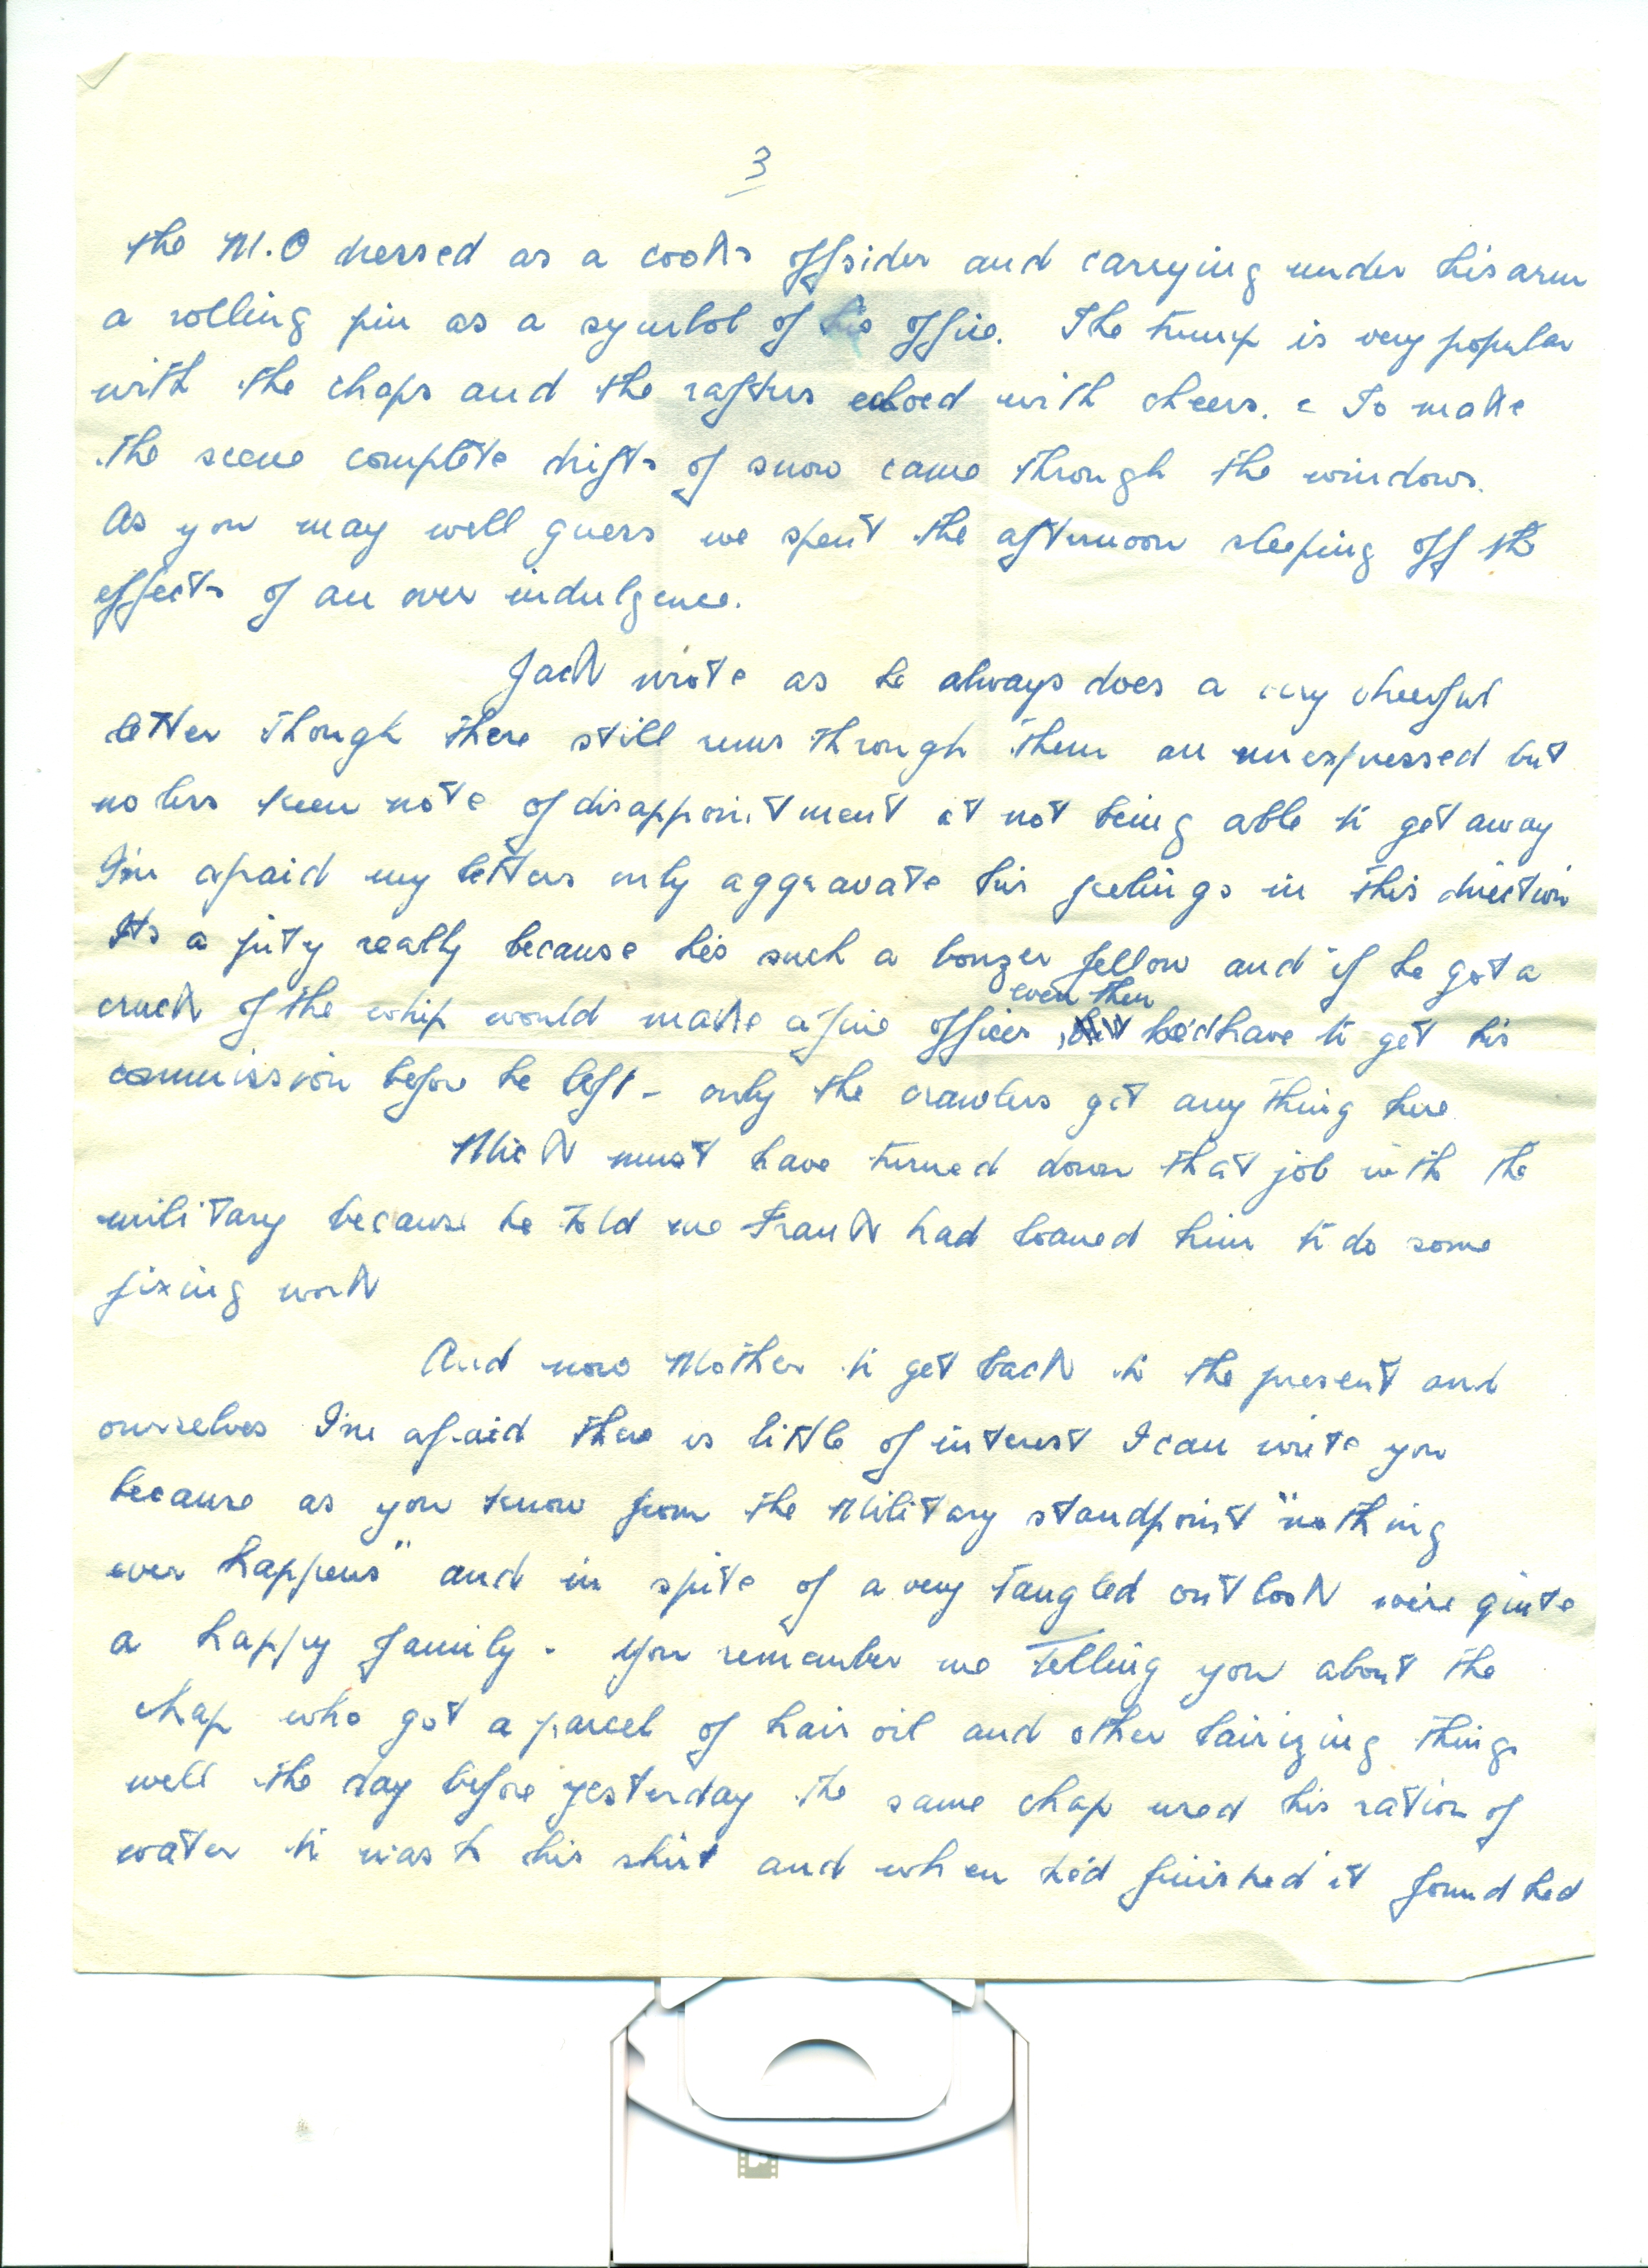 3
the M.O dressed as a cooks offsider and carrying under his arm
a rolling pin as a symbol of his office. The trump is very popular
with the chaps and the rafters echoed with cheers. To make
the scene complete drifts of snow came through the windows.
As you may well guess we spent the afternoon sleeping off the
effects of an over indulgence.
Jack wrote as he always does a very cheerful
letter though there still runs through them an unexpressed but
no less keen note of disappointment at not being able to get away
I'm afraid my letters only aggravate his feelings in this direction
Its a pity really because he's such a bonzer fellow and if he got a
even then
crack of the whip would make a fine officer, he'd have to get his
commission before he left - only the crawlers get anything here
Mick must have turned down that job with the
military because he told me Frank had loaned him to do some
fixing work
And now Mother to get back to the present and
ourselves I'm afraid there is little of interest I can write you
because as you know from the Military standpoint "nothing
ever happens" and in spite of a very tangled outlook we're quite
a happy family - You remember me telling you about the
chap who got a parcel of hair oil and other hairizing things
well the day before yesterday the same chap used his ration of
water to wash his shirt and when he'd finished it found hed